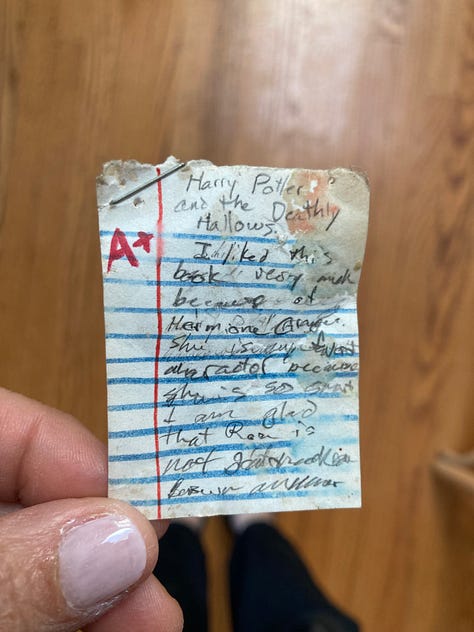 Harry Potter
and the Deathly
Hallows.
A+
I liked this
book very much
because of
Hermione
She is my
because
she is so smart
I am glad
that Ron is
not